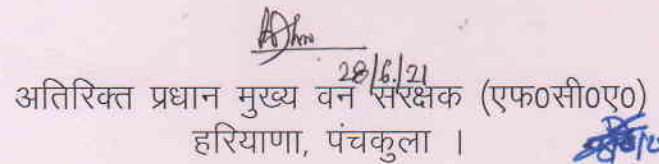 28/6/21
अतिरिक्त प्रधान मुख्य वन संरक्षक (एफ0सी0ए0)
हरियाणा, पंचकुला ।